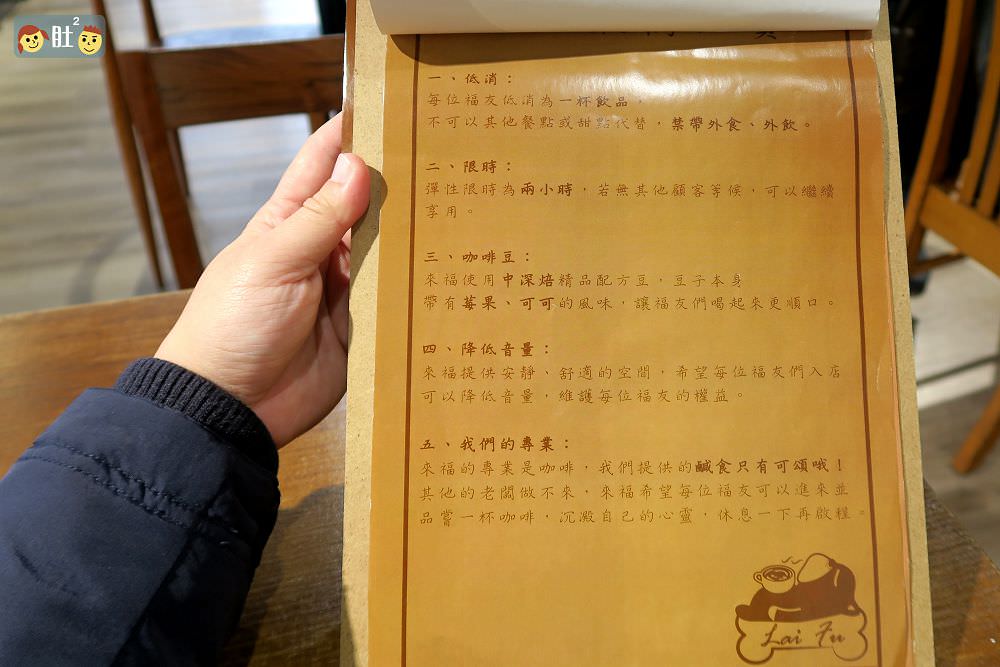 肚2
一、低消：
每位福友低消為一杯飲品，
不可以其他餐點或甜點代替，禁帶外食、外飲。
二、限時：
彈性限時為兩小時，若無其他顧客等候，可以繼續
享用。
三、咖啡豆：
來福使用中深焙精品配方豆，豆子本身
帶有莓果、可可的風味，讓福友們喝起來更順口。
四、降低音量：
來福提供安靜、舒適的空間，希望每位福友們入店
可以降低音量，維護每位福友的權益。
五、我們的專業：
來福的專業是咖啡，我們提供的鹹食只有可頌哦！
其他的老闆做不來，來福希望每位福友可以進來並
品嘗一杯咖啡，沉澱自己的心靈，休息一下再啟程。
Lai Fu